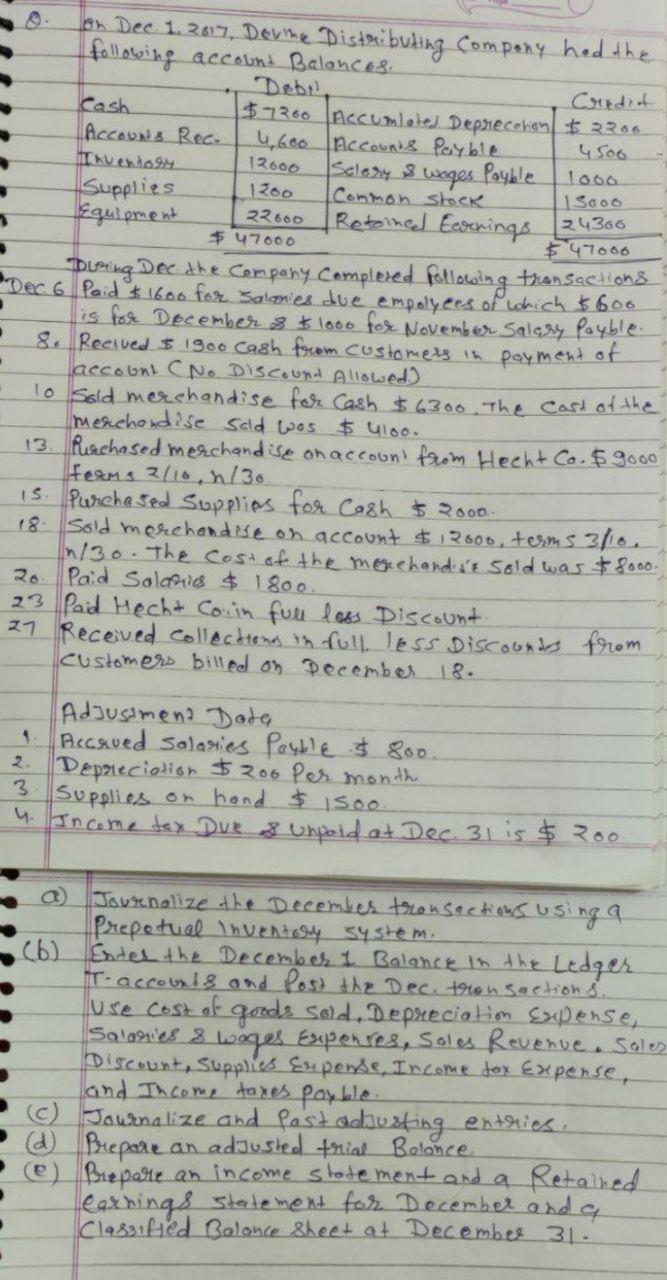 Q. On Dec. 1, 2017, Devine Distributing Company had the
following account Balances.
Debit Credit
Cash $7200 Accumlated Deprecetion $2200
Accounts Rec. 4,600 Accounts Payble 4500
Inventory 12000 Salary & wages Payble 1000
Supplies 1200 Common stock 15000
Equipment 22000 Retained Earnings 24300
$ 47000 $ 47000
During Dec. the Company Completed following transactions
Dec 6 Paid $1600 for salaries due empolyees of which $600
is for December & $1000 for November Salary Payble.
8. Recived $ 1900 cash from customers in payment of
account (No Discount Allowed)
10 Sold merchandise for Cash $6300. The Cost of the
merchandise sold was $ 4100.
13. Purchased merchandise on account from Hecht Co. $9000
terms 2/10, n/30.
15. Purchased Supplies for Cash $ 2000.
18. Sold merchandise on account $12000, terms 3/10,
n/30. The Cost of the merchandise Sold was $8000.
20. Paid Salaries $ 1800.
23 Paid Hecht Co. in full less Discount.
27 Received collections in full. less Discounts from
customers billed on December 18.
Adjustment Data
1. Accrued Salaries Payble $ 800.
2. Depreciation $200 Per month
3. Supplies on hand $ 1500.
4. Income tax Due & unpaid at Dec. 31 is $ 200
a) Journalize the December transactions using a
Prepetual Inventory system.
(b) Enter the December 1 Balance in the Ledger
T-accounts and Post the Dec. transactions.
Use cost of goods sold, Depreciation Expense,
Salaries & wages Expenses, Sales Revenue. Sales
Discount, Supplies Expense, Income tax Expense,
and Income taxes payble.
(c) Journalize and Post adjusting entries.
(d) Prepare an adjusted trial Balance.
(e) Prepare an income statement and a Retained
earnings statement for December and a
Classified Balance Sheet at December 31.